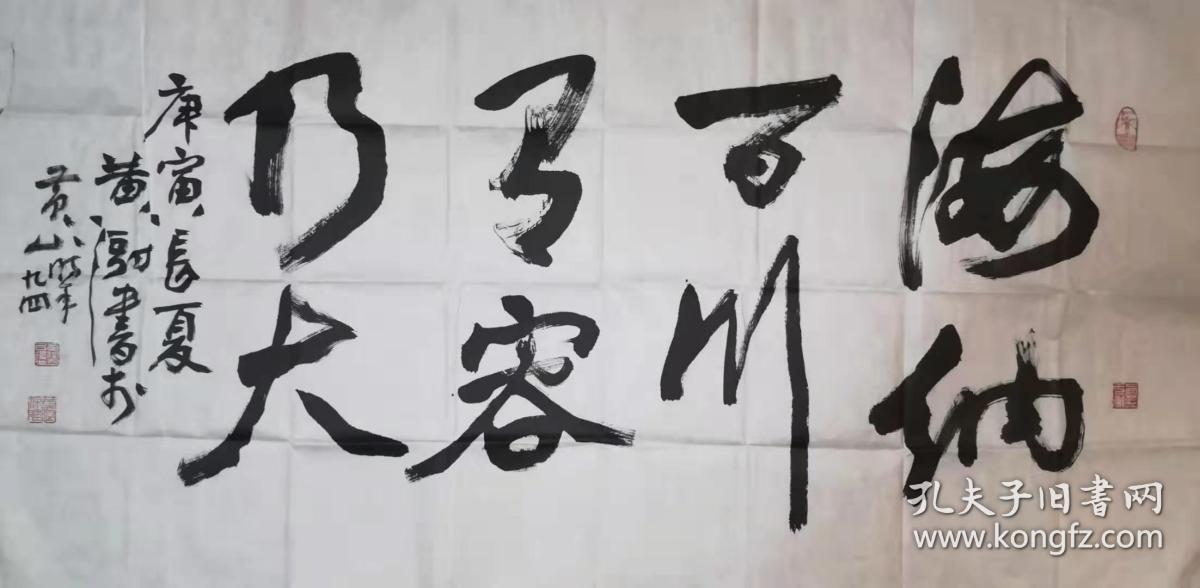 海纳
百川
有容
乃大
庚寅长夏
黄澍书于
黄山时年九四
孔夫子旧书网
www.kongfz.com